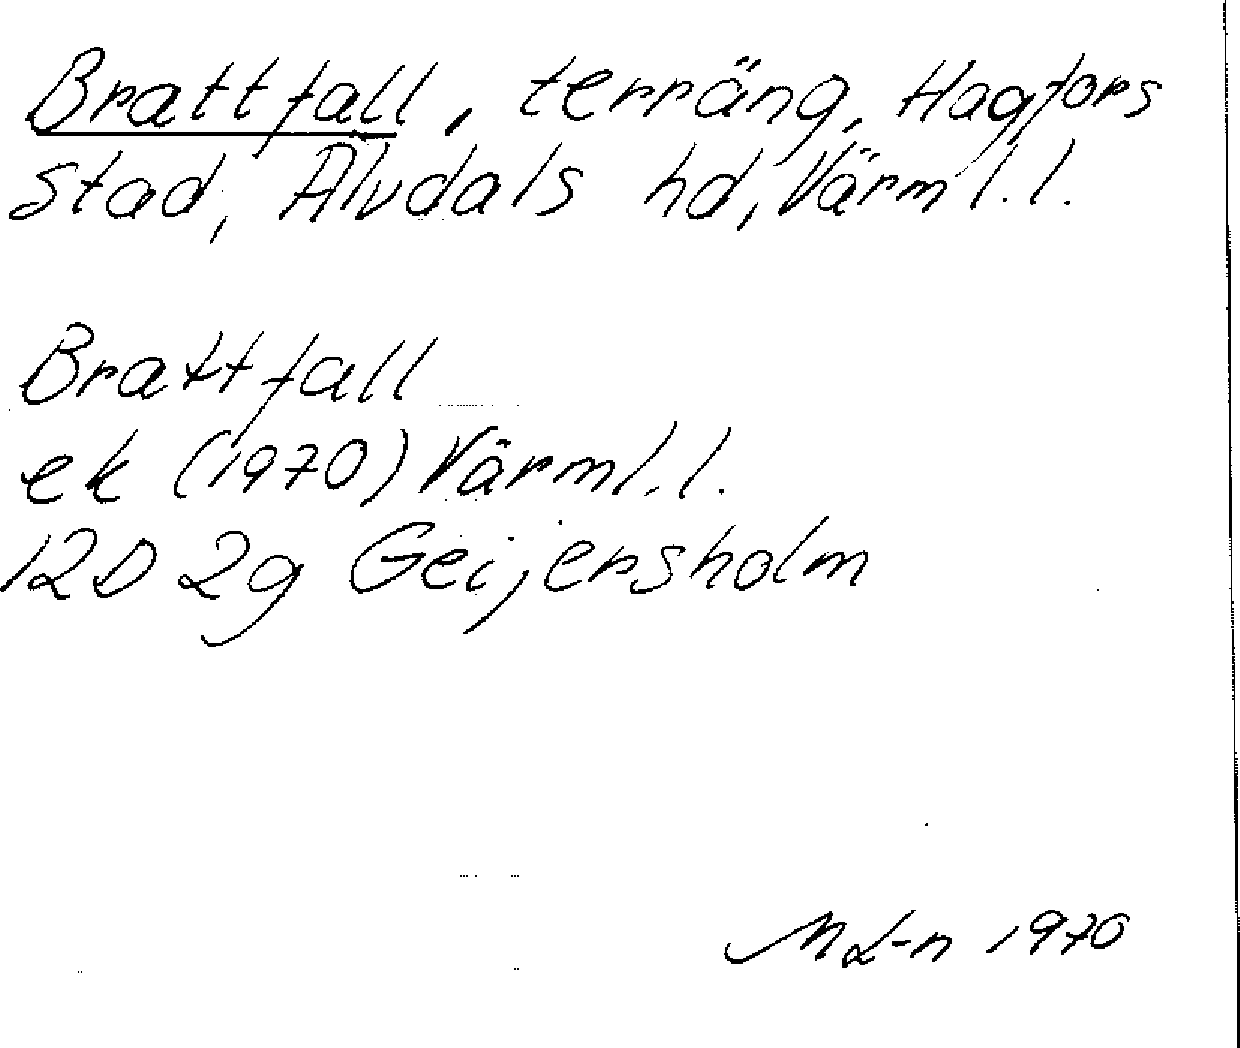 Brattfall, terräng, Hagfors
stad, Älvdals hd, Värml. l.
Brattfall
ek (1970) Värml. l.
12D 2g Geijersholm
M L-n 1970